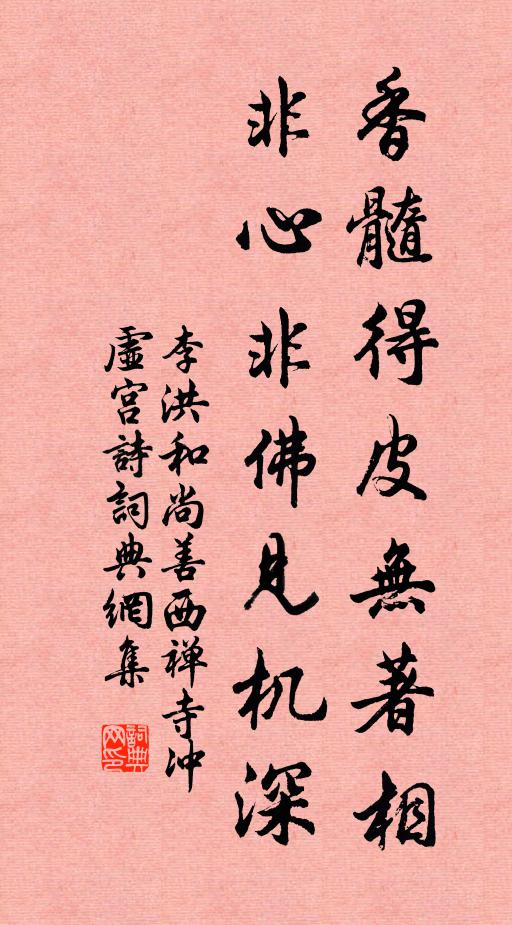 香髓得皮無著相
非心非佛見机深
李洪和尚善西禅寺冲
虛宫詩詞典網集
詞典
网印